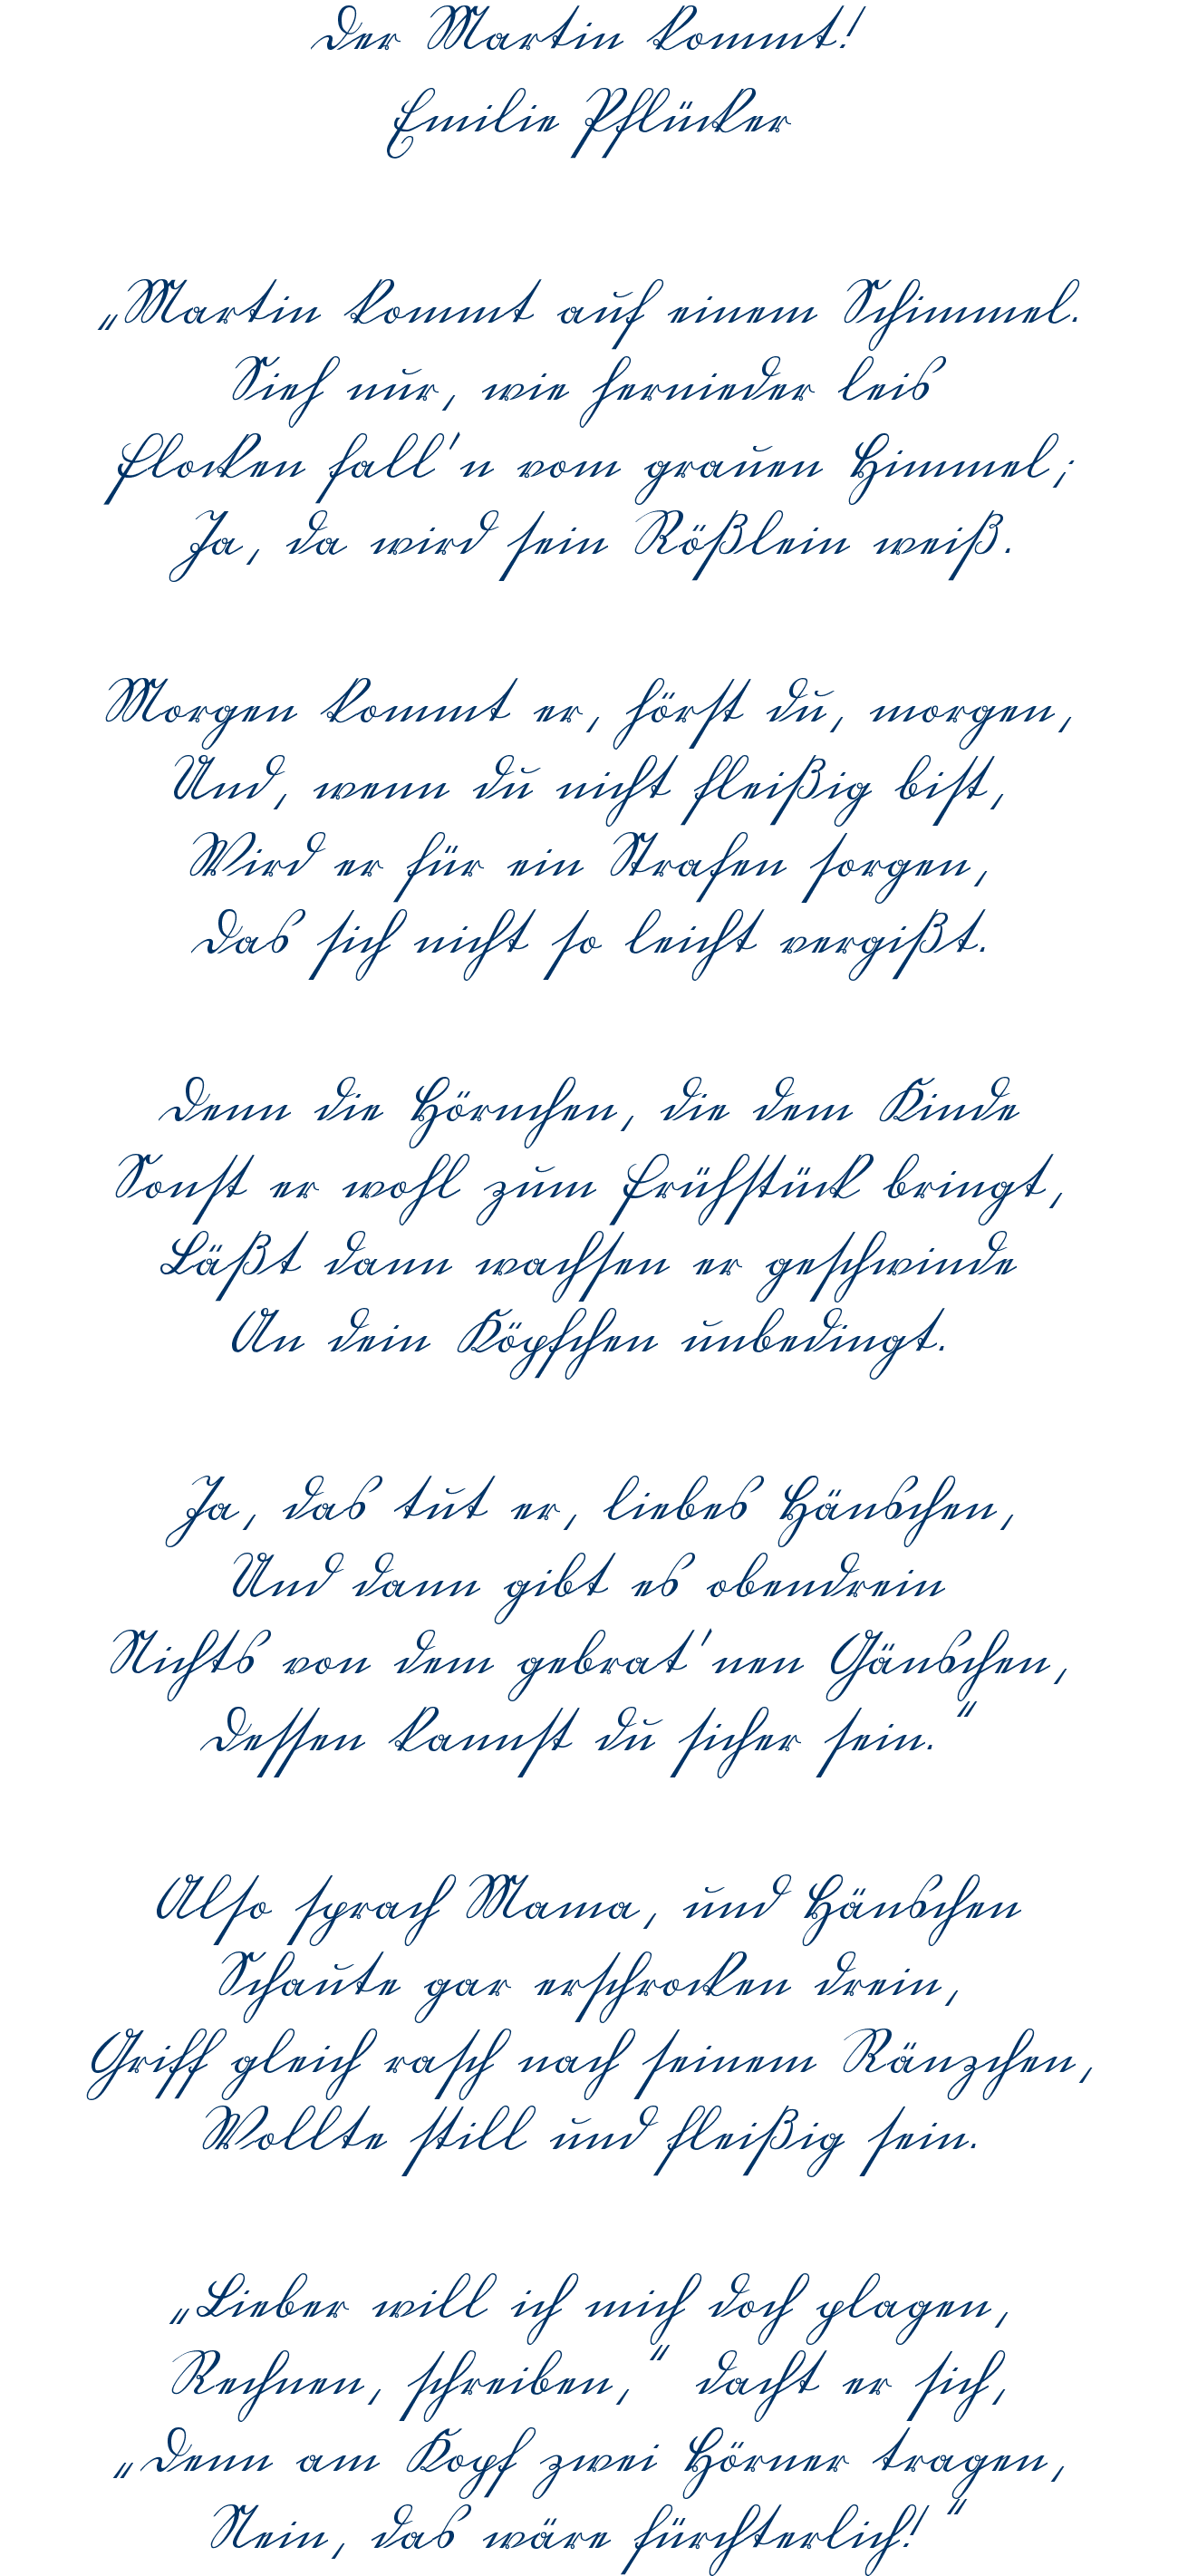 Der Martin kommt!
Emilie Pflücker
„Martin kommt auf einem Schimmel.
Sieh nur, wie hernieder leis
Flocken fall'n vom grauen Himmel;
Ja, da wird sein Rößlein weiß.
Morgen kommt er, hörst du, morgen,
Und, wenn du nicht fleißig bist,
Wird er für ein Strafen sorgen,
Das sich nicht so leicht vergißt.
Denn die Hörnchen, die dem Kinde
Sonst er wohl zum Frühstück bringt,
Läßt dann wachsen er geschwinde
An dein Köpfchen unbedingt.
Ja, das tut er, liebes Hänschen,
Und dann gibt es obendrein
Nichts von dem gebrat'nen Gänschen,
Dessen kannst du sicher sein.“
Also sprach Mama, und Hänschen
Schaute gar erschrocken drein,
Griff gleich rasch nach seinem Ränzchen,
Wollte still und fleißig sein.
„Lieber will ich mich doch plagen,
Rechnen, schreiben,“ dacht er sich,
„Denn am Kopf zwei Hörner tragen,
Nein, das wäre fürchterlich!“